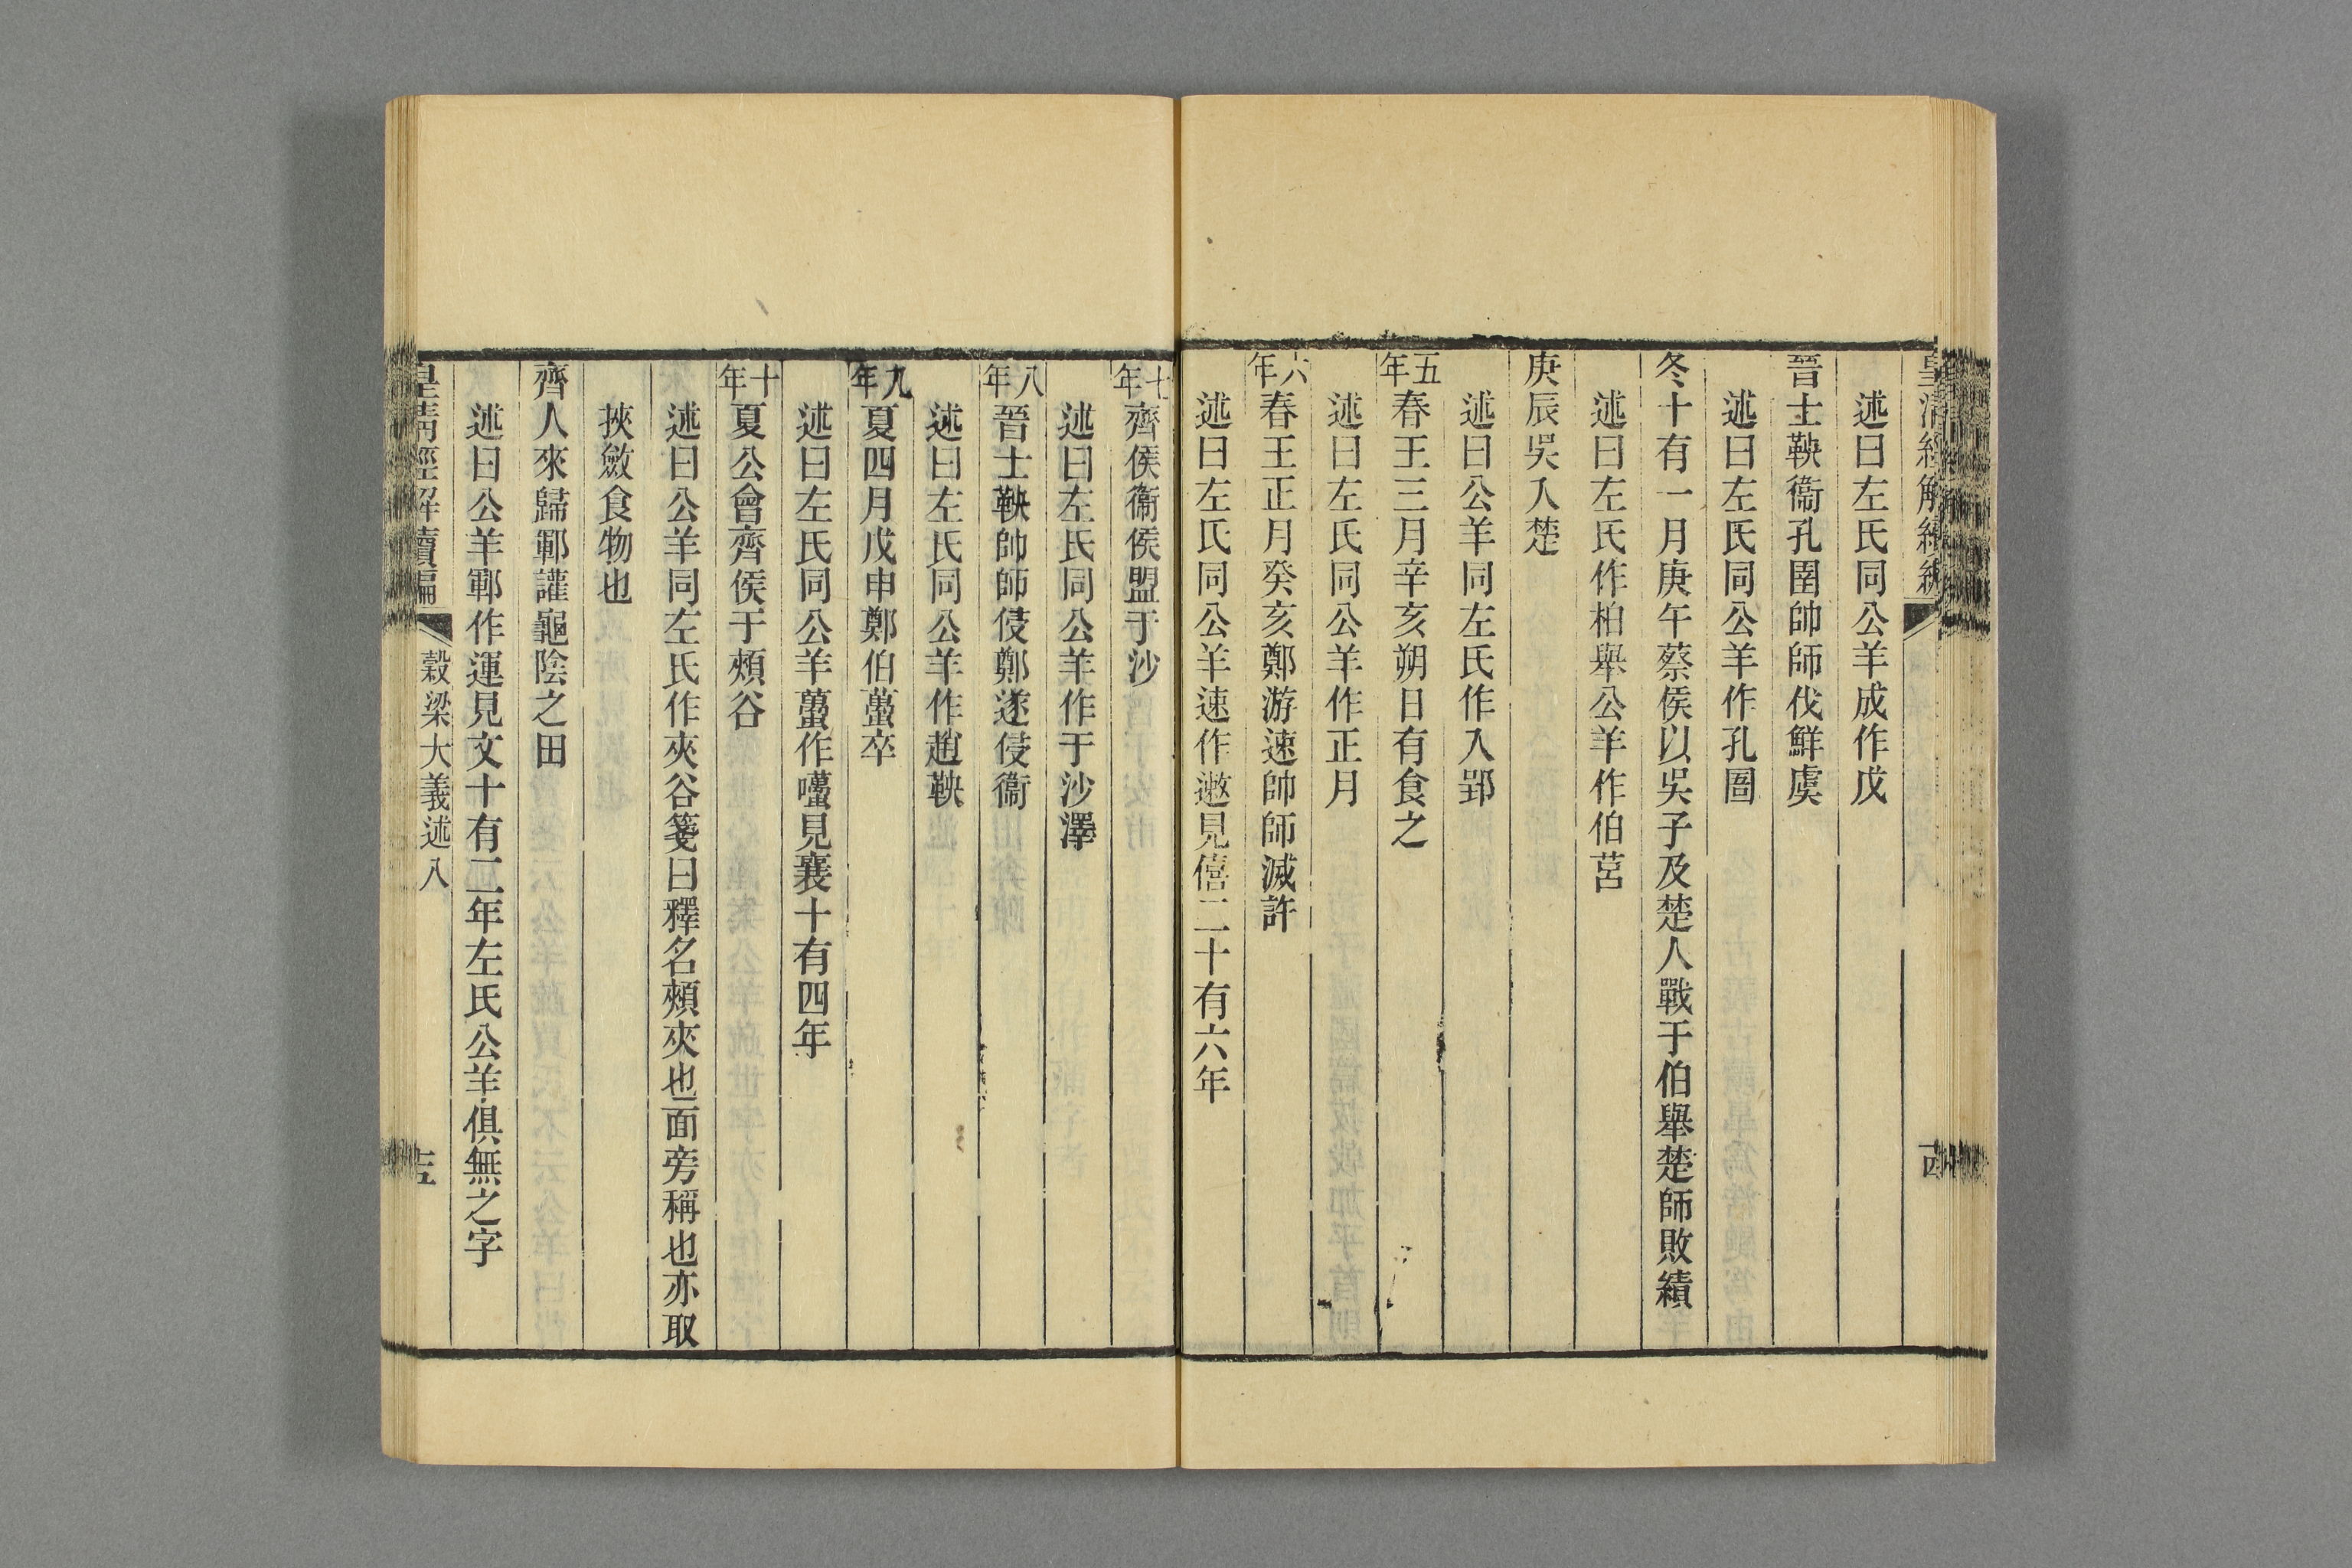 皇清經解續編
述曰左氏同公羊成作戊
晉士鞅衞孔圉帥師伐鮮虞
述曰左氏同公羊作孔圄
冬十有一月庚午蔡侯以吳子及楚人戰于伯舉楚師敗績
述曰左氏作柏舉公羊作伯莒
庚辰吳入楚
述曰公羊同左氏作入郢
五年春王三月辛亥朔日有食之
述曰左氏同公羊作正月
六年春王正月癸亥鄭游速帥師滅許
述曰左氏同公羊速作遬見僖二十有六年
七年齊侯衞侯盟于沙
述曰左氏同公羊作于沙澤
八年晉士鞅帥師侵鄭遂侵衞
述曰左氏同公羊作趙鞅
九年夏四月戊申鄭伯蠆卒
述曰左氏同公羊蠆作囆見襄十有四年
十年夏公會齊侯于頰谷
述曰公羊同左氏作夾谷箋曰釋名頰夾也面旁稱也亦取
挾斂食物也
齊人來歸鄆讙龜陰之田
述曰公羊鄆作運見文十有二年左氏公羊俱無之字
皇清經解續編 穀梁大義述八 十五